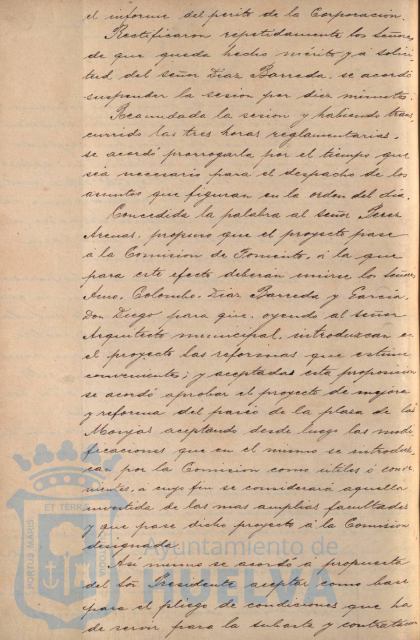 el informe del perito de la Corporación.
Rectificaron repetidamente los Señores
de que queda hecho mérito y á solici-
tud del señor Diaz Barreda, se acordó
suspender la sesión por diez minutos.
Reanudada la sesion y habiendo trans-
currido las tres horas reglamentarias,
se acordó prorrogarla por el tiempo que
sea necesario para el despacho de los
asuntos que figuran en la orden del dia.
Concedida la palabra al señor Perez
Arenas, propuso que el proyecto pase
á la Comision de Fomento, á la que
para este efecto deberán unirse los señores
Colombo, Diaz Barreda y García,
Don Diego para que, oyendo al señor
Arquitecto municipal, introduzcan en
el proyecto las reformas que estime
convenientes; y aceptada esta proposicion
se acordó aprobar el proyecto de mejora
y reforma del paseo de la plaza de las
Monjas aceptando desde luego las modi-
ficaciones que en el mismo se introduz-
can por la Comision como útiles ó conve-
nientes, á cuyo fin se considerará aquella
investida de las mas amplias facultades
y que pase dicho proyecto á la Comision
designada.
Asi mismo se acordó á propuesta
del Sor. Presidente aceptar como base
para el pliego de condiciones que ha
de servir para la subasta y contratacion
PORTUS MARIS
ET TERRAE
Ayuntamiento de
HUELVA